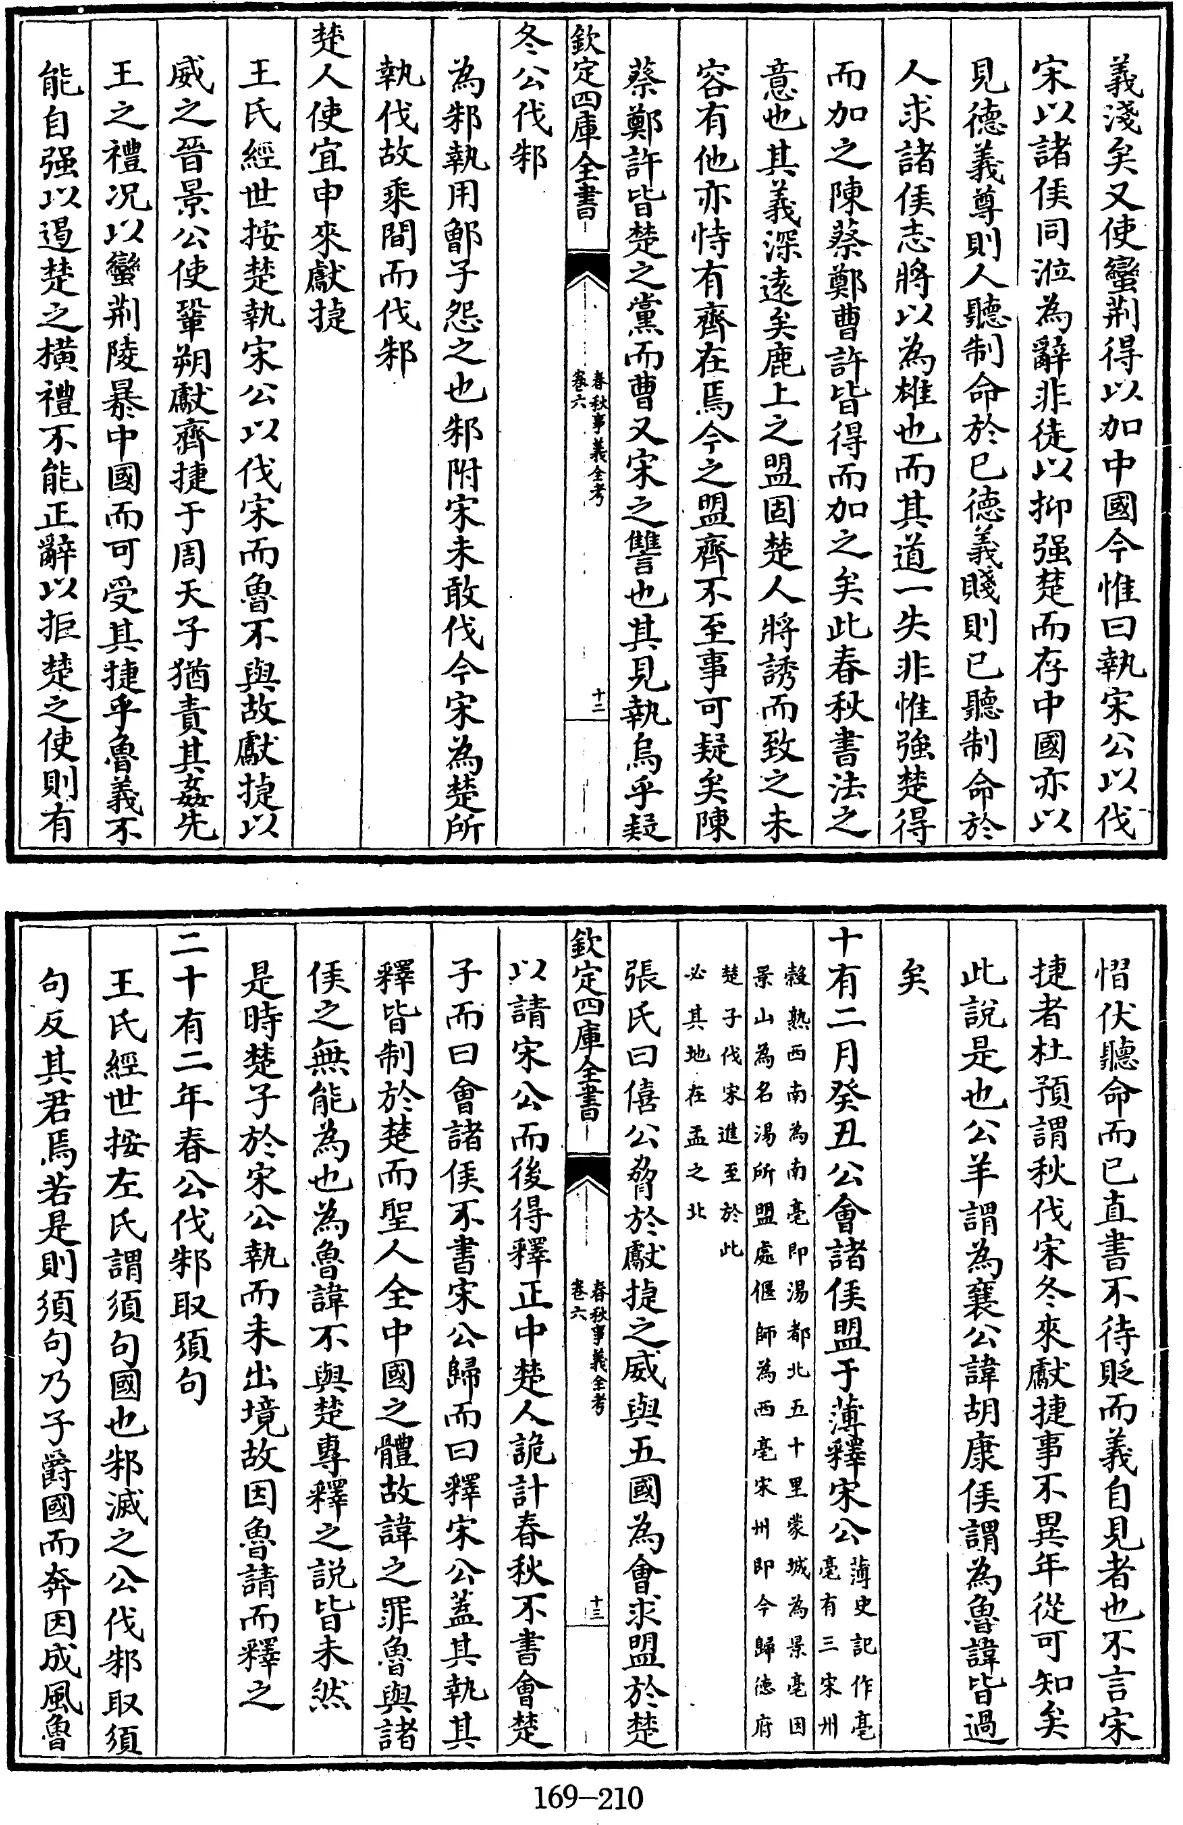 義淺矣又使蠻荆得以加中國今惟曰執宋公以伐
宋以諸侯同涖為辭非徒以抑强楚而存中國亦以
見德義尊則人聽制命於已德義賤則已聽制命於
人求諸侯志將以為雄也而其道一失非惟強楚得
而加之陳蔡鄭曹許皆得而加之矣此春秋書法之
意也其義深遠矣鹿上之盟固楚人將誘而致之未
容有他亦恃有齊在焉今之盟齊不至事可疑矣陳
蔡鄭許皆楚之黨而曹又宋之讐也其見執烏乎疑
欽定四庫全書
春秋事義全考
卷六
十二
冬公伐邾
為邾執用鄫子怨之也邾附宋未敢伐今宋為楚所
執伐故乘間而伐邾
楚人使宜申來獻捷
王氏經世按楚執宋公以伐宋而魯不與故獻捷以
威之晉景公使鞏朔獻齊捷于周天子猶責其姦先
王之禮况以蠻荆陵暴中國而可受其捷乎魯義不
能自强以遏楚之橫禮不能正辭以拒楚之使則有
慴伏聽命而已直書不待貶而義自見者也不言宋
捷者杜預謂秋伐宋冬來獻捷事不異年從可知矣
此說是也公羊謂為襄公諱胡康侯謂為魯諱皆過
矣
十有二月癸丑公會諸侯盟于薄釋宋公薄史記作亳
亳有三宋州
穀熟西南為南亳即湯都北五十里蒙城為景亳因
景山為名湯所盟處偃師為西亳宋州即今歸德府
楚子伐宋進至於此
必其地在盂之北
張氏曰僖公脅於獻捷之威與五國為會求盟於楚
欽定四庫全書
春秋事義全考
卷六
十三
以請宋公而後得釋正中楚人詭計春秋不書會楚
子而曰會諸侯不書宋公歸而曰釋宋公蓋其執其
釋皆制於楚而聖人全中國之體故諱之罪魯與諸
侯之無能為也為魯諱不與楚專釋之說皆未然
是時楚子於宋公執而未出境故因魯請而釋之
二十有二年春公伐邾取須句
王氏經世按左氏謂須句國也邾滅之公伐邾取須
句反其君焉若是則須句乃子爵國而奔因成風魯
169-210